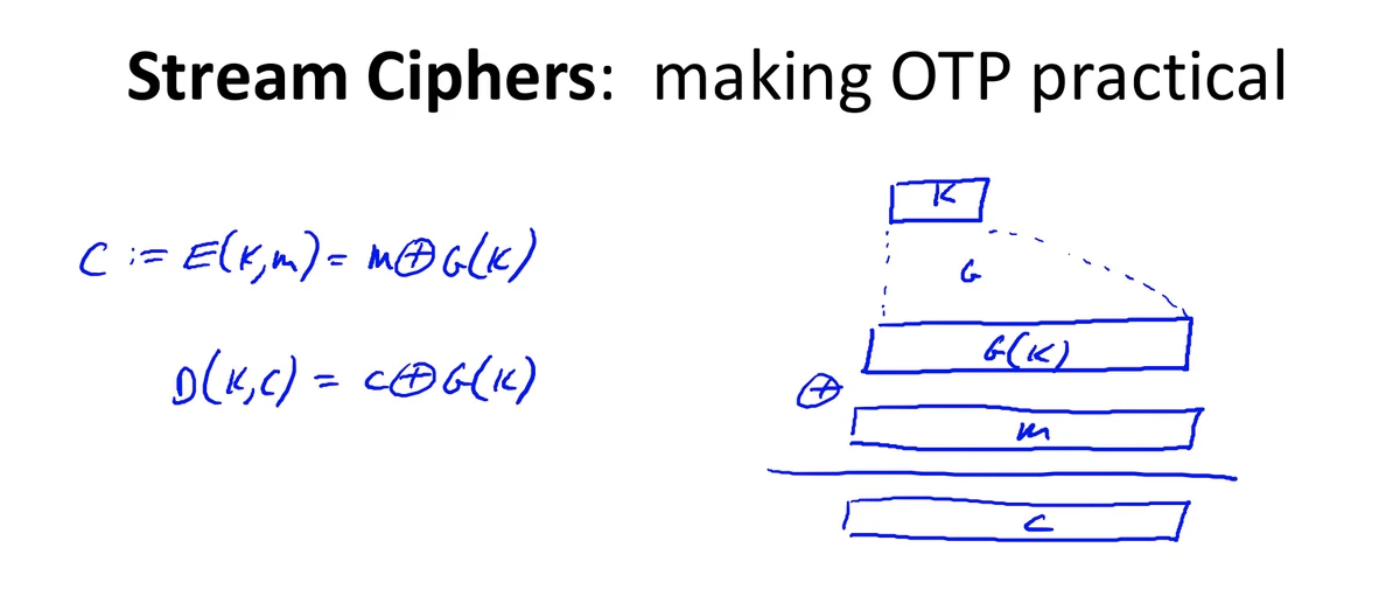 Stream Ciphers: making OTP practical
C := E(K,m) = m⊕G(K)
D(K,C) = C⊕G(K)
K
G
G(K)
⊕
m
C